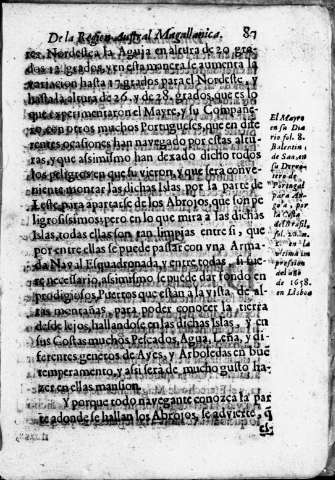 De la Region Austral Magallanica. 87
res, Nordestea la Aguja en altura de 20. gra-
dos 12. grados, y en esta manera se aumenta la
variacion hasta 15. grados por el Nordeste, y
hasta la altura de 26. y de 28. grados, que es lo
que experimentaron el Mayre, y su Compañe-
ro, con otros muchos Portugueses, que en dife
rentes ocasiones han navegado por estas altu
ras, y que assimismo han dexado dicho todos
los peligros en que su vieron, y que serà conve-
niente montar las dichas Islas por la parte de
Leste, para apartarse de los Abrojos, que son pe
ligrosissimos; pero en lo que mira à las dichas
Islas, todas ellas son tan limpias entre si, que
por entre ellas se puede passar con vna Arma-
da Naval Esquadronada, y entre todas, si fue
re necessario, assimismo se puede dar fondo en
prodigiosos Puertos que estan a la vista, de al-
tas montañas, para poder conocer la tierra
desde lejos, hallandose en las dichas Islas, y en
sus Costas muchos Pescados, Agua, Leña, y di-
ferentes generos de Aves, y Arboledas en bue
temperamento, y assi serà de mucho gusto ha-
zer en ellas mansion.
Y porque todo navegante conozca la par
te adonde se hallan los Abrojos, se advierte, q̃
es
El Mayre
en su Dia
rio fol. 8.
Balentin
de San, en
su Derro-
tero de
Portugal
para An-
gola, por
la Costa
del Brasil,
fol. 20. n.
2. en la
vltima im
pression
del año
de 1658.
en Lisboa